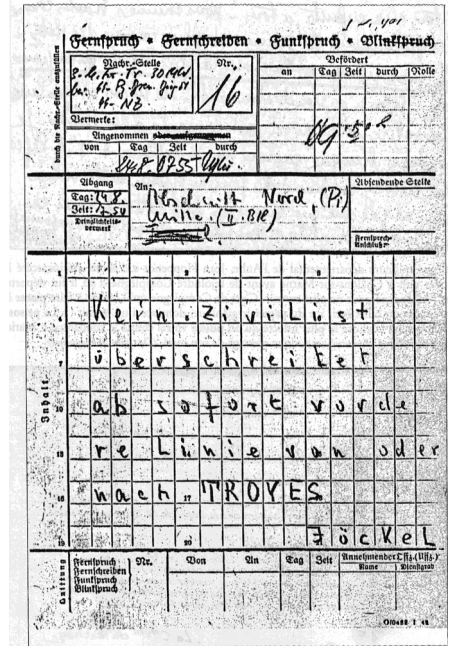 Fernspruch • Fernschreiben • Funkspruch • Blinkspruch
Durch die Nachr.-Stelle auszufüllen
Nachr.-Stelle
Nr.
16
Befördert
an Tag Zeit durch Rolle
Vermerke:
Angenommen oder aufgenommen
von Tag Zeit durch
24.8. 0755
Abgang
Tag: 24.8.
Zeit:
Dringlichkeits-
vermerk
An:
Abschnitt Nord, (Pi)
Mitte. (II. BR)
Absendende Stelle
Fernsprech-
Anschluß:
Inhalt
Kein Zivilist
überschreitet
ab sofort vorde
re Linie von oder
nach TROYES
Jöckel
Quittung
Fernspruch
Fernschreiben
Funkspruch
Blinkspruch
Nr. Von An Tag Zeit Annehmender Offz. (Uffz.)
Name Dienstgrad